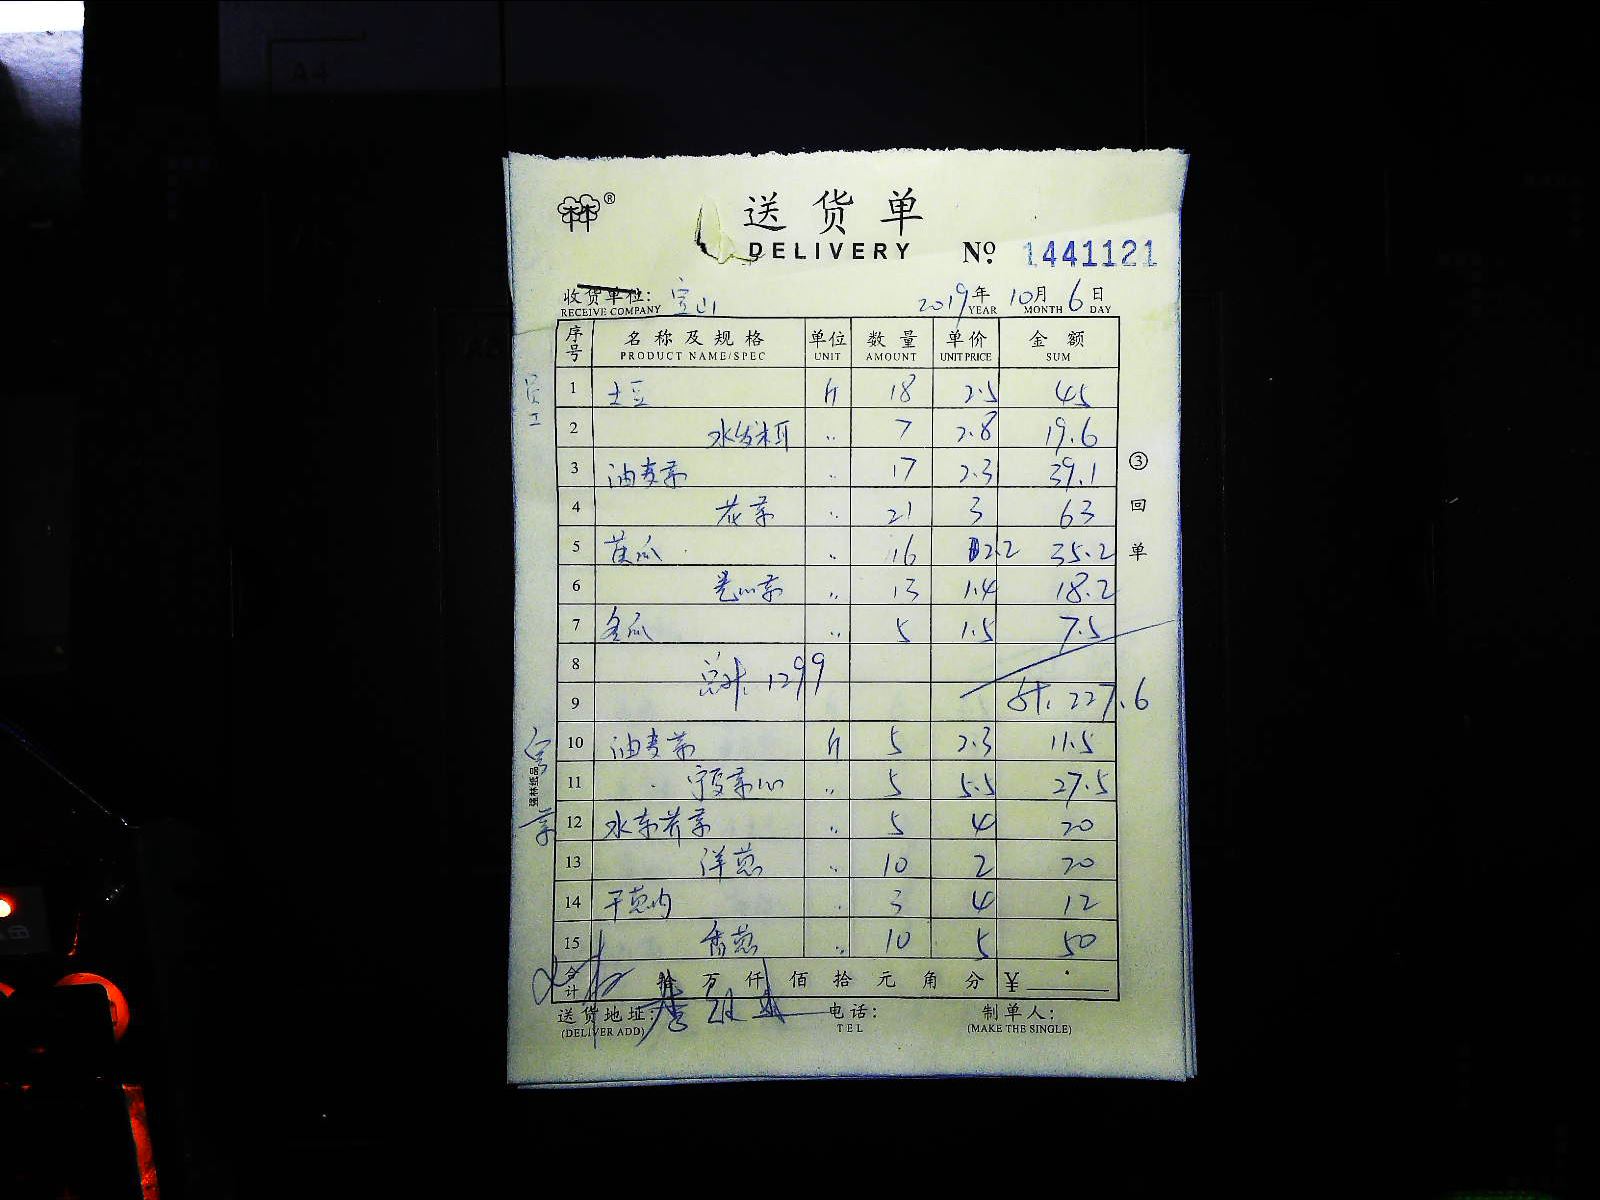 送货单
DELIVERY № 1441121
收货单位: 宝山 2019年 10月 6日
RECEIVE COMPANY YEAR MONTH DAY
序号 名称及规格 单位 数量 单价 金额
PRODUCT NAME/SPEC UNIT AMOUNT UNIT PRICE SUM
员工
1 土豆 斤 18 2.5 45
2 水发木耳 〃 7 2.8 19.6
3 油麦菜 〃 17 2.3 39.1
4 花菜 〃 21 3 63
5 黄瓜 〃 16 2.2 35.2
6 〃 13 1.4 18.2
7 冬瓜 〃 5 1.5 7.5
8 总计. 1299
9 计. 227.6
10 油麦菜 斤 5 2.3 11.5
11 宁夏菜心 〃 5 5.5 27.5
12 水东芥菜 〃 5 4 20
13 洋葱 〃 10 2 20
14 干葱肉 〃 3 4 12
15 香葱 〃 10 5 50
合计 拾 万 仟 佰 拾 元 角 分 ¥
送货地址: 电话: 制单人:
(DELIVER ADD) TEL (MAKE THE SINGLE)
③回单
强林纸品
A4